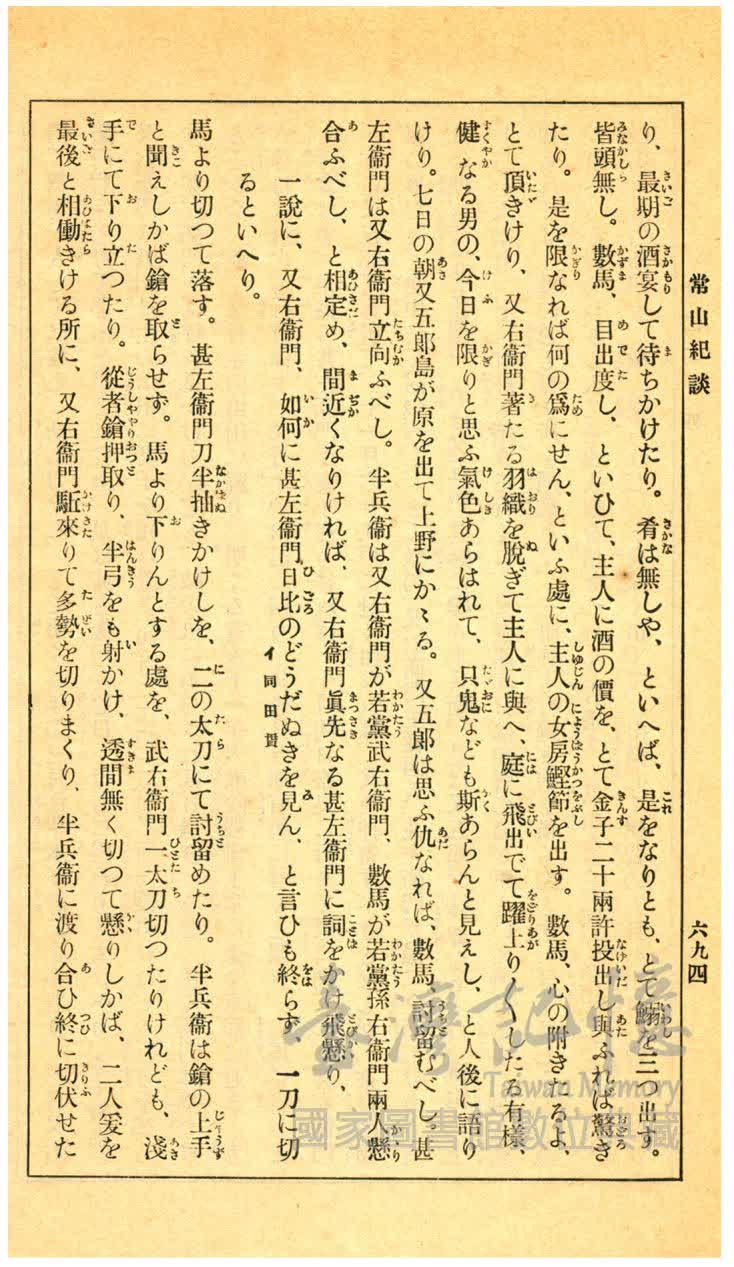 常山紀談
六九四
り、最期の酒宴して待ちかけたり。肴は無しや、といへば、是をなりとも、とて鰯を三つ出す。
皆頭無し。數馬、目出度し、といひて、主人に酒の價を、とて金子二十兩許投出し與ふれば驚き
たり。是を限なれば何の爲にせん、といふ處に、主人の女房鰹節を出す。數馬、心の附きたるよ、
とて頂きけり、又右衞門著たる羽織を脫ぎて主人に與へ、庭に飛出でて躍上り〱したる有樣、
健なる男の、今日を限りと思ふ氣色あらはれて、只鬼なども斯あらんと見えし、と人後に語り
けり。七日の朝又五郎島が原を出て上野にかゝる。又五郎は思ふ仇なれば、數馬討留むべし。甚
左衞門は又右衞門立向ふべし。半兵衞は又右衞門が若黨武右衞門、數馬が若黨孫右衞門兩人懸
合ふべし、と相定め、間近くなりければ、又右衞門眞先なる甚左衞門に詞をかけ飛懸り、
一說に、又右衞門、如何に甚左衞門、日比のどうだぬきを見ん、と言ひも終らず、一刀に切
イ同田貫
るといへり。
馬より切つて落す。甚左衞門刀半抽きかけしを、二の太刀にて討留めたり。半兵衞は鎗の上手
と聞えしかば鎗を取らせず。馬より下りんとする處を、武右衞門一太刀切つたりけれども、淺
手にて下り立つたり。從者鎗押取り、半弓をも射かけ、透間無く切つて懸りしかば、二人爰を
最後と相働きける所に、又右衞門駈來りて多勢を切りまくり、半兵衞に渡り合ひ終に切伏せた
臺灣記憶
Taiwan Memory
國家圖書館數位典藏